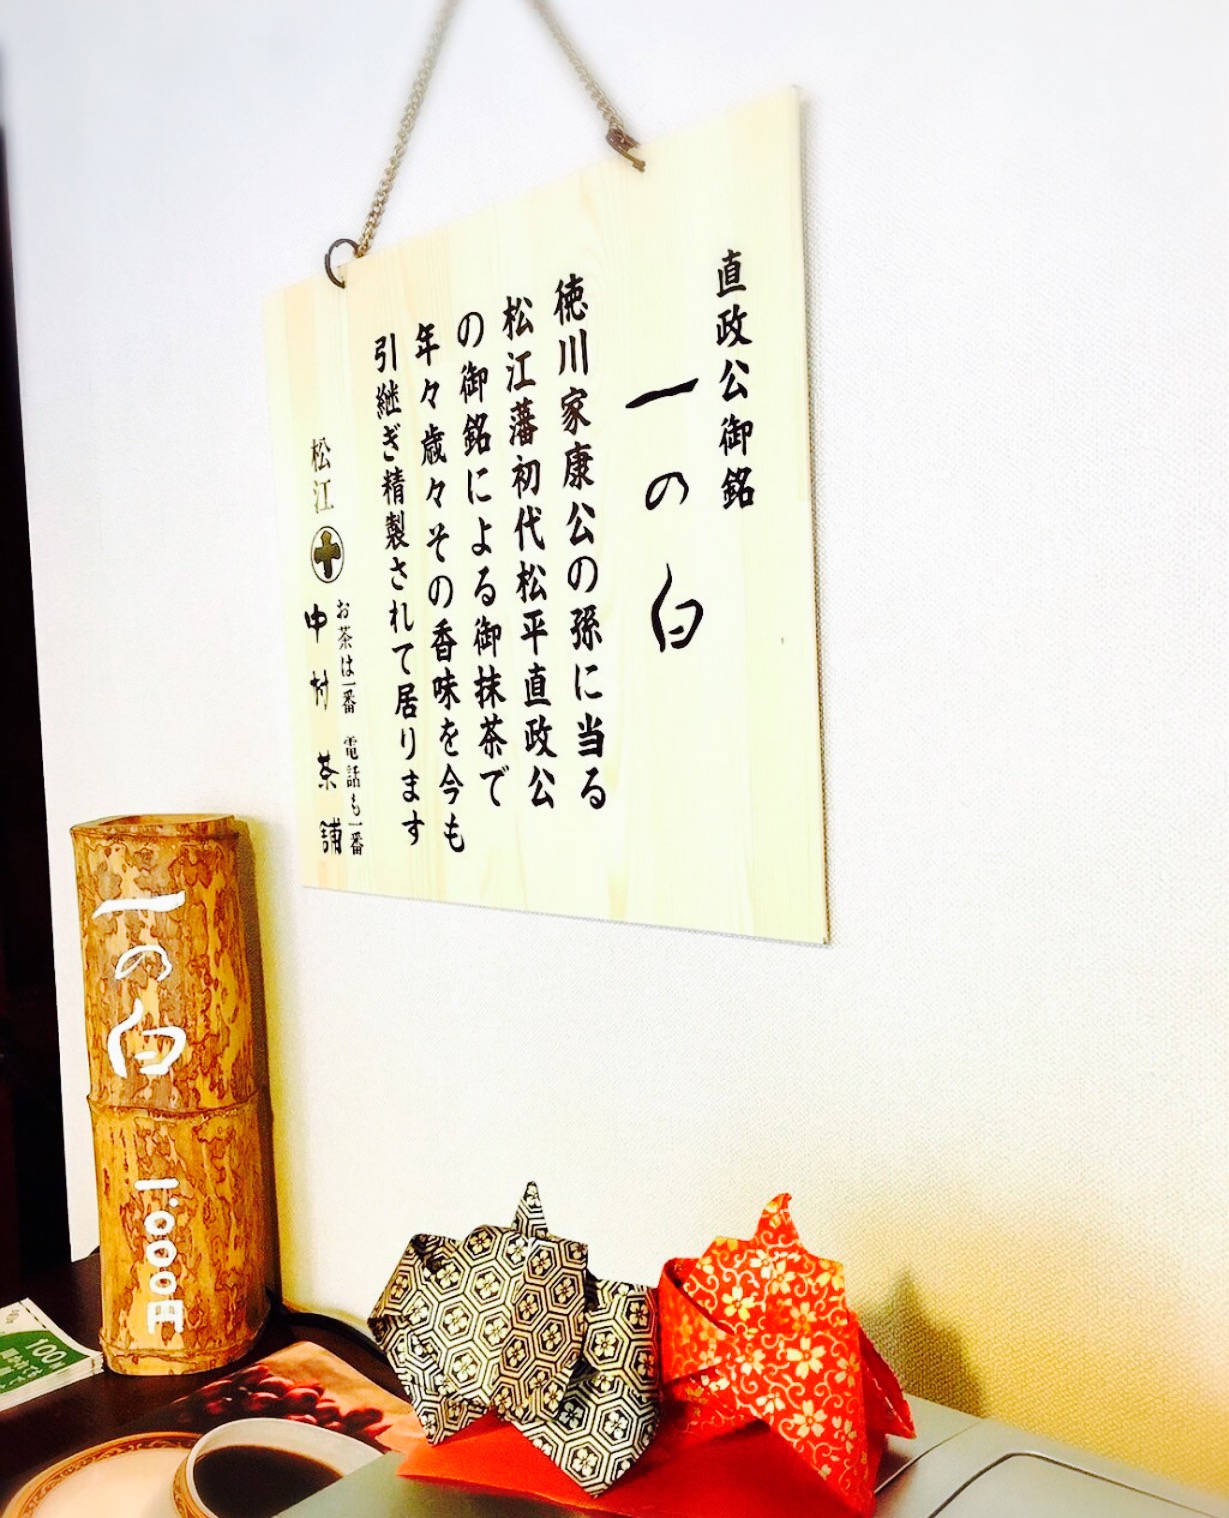 直政公御銘
一の白
徳川家康公の孫に当る
松江藩初代松平直政公
の御銘による御抹茶で
年々歳々その香味を今も
引継ぎ精製されて居ります
お茶は一番 電話も一番
松江 中村茶舗
一の白
一.000円
100